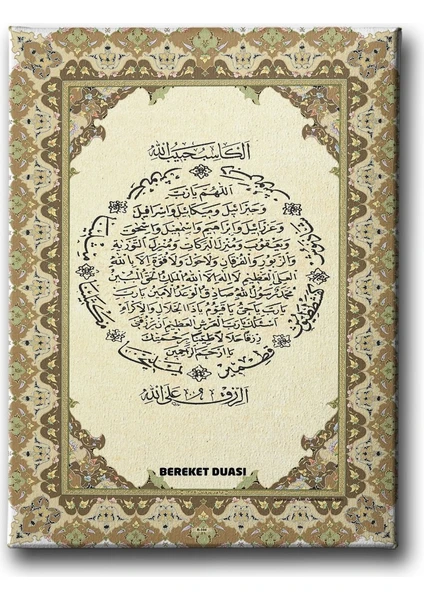 الكاسب حبيب الله
اللهم يا رب
وجبرائيل وميكائيل واسرافيل
وعزرائيل وابراهيم واسمعيل واسحق
ويعقوب ومنزل البركات ومنزل التورية
والزبور والفرقان ولا حول ولا قوة الا بالله
العلي العظيم لا اله الا الله الملك الحق المبين
محمد رسول الله صادق الوعد الامين يا رب
يا رب يا حي يا قيوم يا ذا الجلال والاكرام
اسئلك يا رب العرش العظيم ان ترزقني
رزقا حلالا طيبا برحمتك
يا ارحم الراحمين
الرزق على الله
BEREKET DUASI